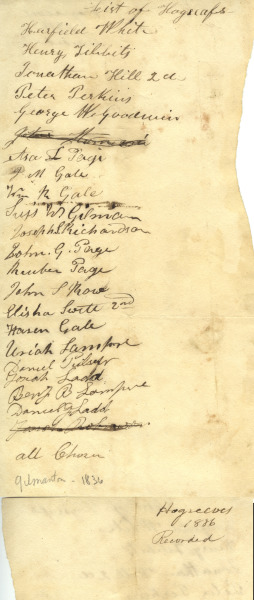 List of Hogreafs
Harfield White
Henry Tibbits
Jonathan Hill 2d
Peter Perkins
George W Goodwin
John
Asa L Page
P M Gale
Wm R Gale
Sups W Gilman
Joseph S Richardson
John. G. Page
Reuben Page
John S Mow
Elisha Swett 2nd
Hazen Gale
Uriah Lamprey
Daniel
Josiah Ladd
Benj B Lamprey
Daniel Ladd
all Chosen
Gilmanton - 1836
Hogreeves
1836
Recorded